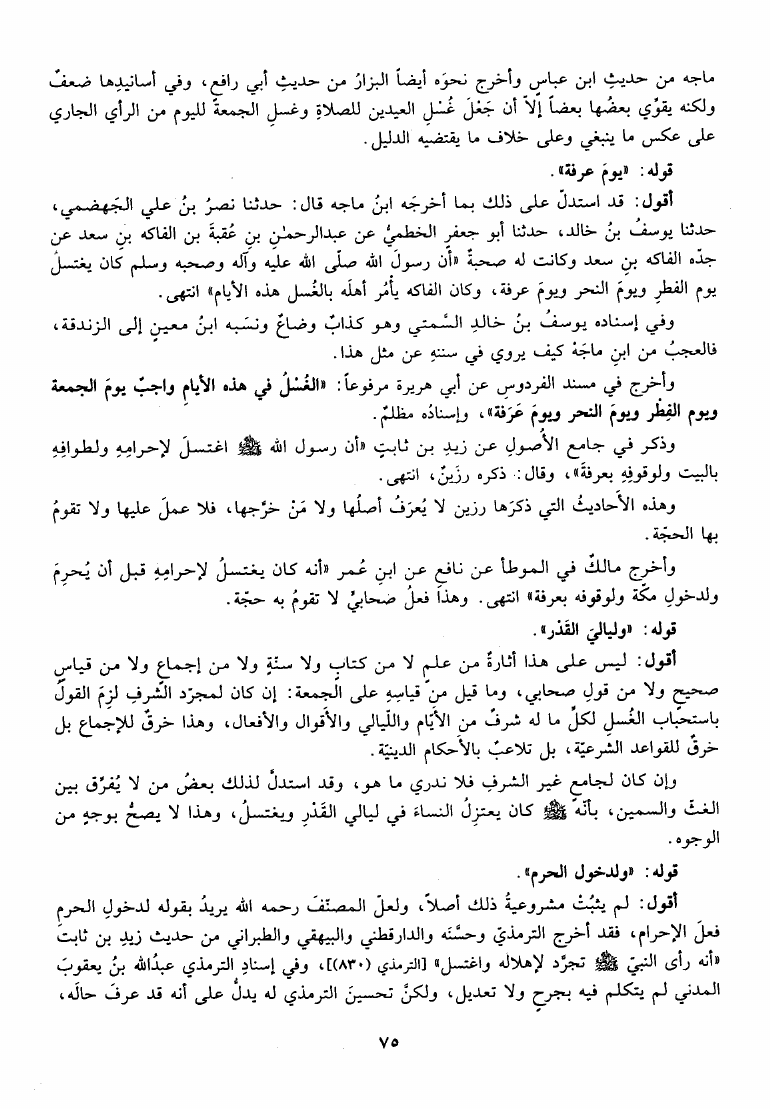 ماجه من حديثِ ابن عباسٍ وأخرج نحوَه أيضاً البزارُ من حديثِ أبي رافعٍ، وفي أسانيدِها ضعفٌ
ولكنه يقوِّي بعضُها بعضاً إلّا أن جَعْلَ غُسْلِ العيدين للصلاةِ وغسلِ الجمعةِ لليوم من الرأي الجاري
على عكس ما ينبغي وعلى خلاف ما يقتضيه الدليل.
قوله: «يومَ عرفة».
أقول: قد استدلّ على ذلك بما أخرجَه ابنُ ماجه قال: حدثنا نصرُ بنُ علي الجَهضمي،
حدثنا يوسفُ بنُ خالد، حدثنا أبو جعفرٍ الخطميُّ عن عبدالرحمٰنِ بنِ عُقبةَ بن الفاكه بنِ سعد عن
جدّه الفاكه بنِ سعد وكانت له صحبةٌ «أن رسولَ الله صلّى الله عليه وآله وصحبه وسلم كان يغتسلُ
يوم الفطرِ ويومَ النحر ويومَ عرفة، وكان الفاكه يأمُر أهلَه بالغُسل هذه الأيام» انتهى.
وفي إسناده يوسفُ بنُ خالدِ السَّمتي وهو كذابٌ وضاعٌ ونسَبه ابنُ معينٍ إلى الزندقة،
فالعجبُ من ابنِ ماجَهْ كيف يروي في سننهِ عن مثل هذا.
وأخرج في مسند الفردوسِ عن أبي هريرة مرفوعاً: «الغُسْلُ في هذه الأيامِ واجبٌ يومَ الجمعة
ويوم الفِطْر ويومَ النحر ويومَ عَرَفة»، وإسنادُه مظلمٌ.
وذكر في جامع الأصولِ عن زيدِ بن ثابتٍ «أن رسول الله ﷺ اغتسلَ لإحرامِهِ ولطوافِهِ
بالبيت ولوقوفِهِ بعرفةَ»، وقال: ذكره رزَينٌ، انتهى.
وهذه الأحاديثُ التي ذكرَها رزين لا يُعرَفُ أصلُها ولا مَنْ خرَّجها، فلا عملَ عليها ولا تقومُ
بها الحجّة.
وأخرج مالكٌ في الموطأ عن نافع عن ابنِ عُمر «أنه كان يغتسلُ لإحرامِهِ قبل أن يُحرِمَ
ولدخولِ مكّة ولوقوفه بعرفة» انتهى. وهذا فعلُ صحابيٍّ لا تقومُ به حجّة.
قوله: «ولياليَ القَدْر».
أقول: ليس على هذا أثارةٌ من علمٍ لا من كتابٍ ولا سنّةٍ ولا من إجماعٍ ولا من قياسٍ
صحيحٍ ولا من قولِ صحابي، وما قيل من قياسِهِ على الجمعة: إن كان لمجرّد الشرفِ لزِمَ القولُ
باستحباب الغُسلِ لكلِّ ما له شرفٌ من الأيّام واللّيالي والأقوال والأفعال، وهذا خرقٌ للإجماع بل
خرقٌ للقواعد الشرعيّة، بل تلاعبٌ بالأحكام الدينيّة.
وإن كان لجامعٍ غير الشرفِ فلا ندري ما هو، وقد استدلَّ لذلك بعضُ من لا يُفرِّق بين
الغثّ والسمين، بأنّه ﷺ كان يعتزِلُ النساءَ في ليالي القَدْرِ ويغتسلُ، وهذا لا يصحُّ بوجهٍ من
الوجوه.
قوله: «ولدخول الحرم».
أقول: لم يثبُتْ مشروعيةُ ذلك أصلاً، ولعلّ المصنّفَ رحمه الله يريدُ بقوله لدخولِ الحرمِ
فعلَ الإحرام، فقد أخرج الترمذيّ وحسَّنَه والدارقطني والبيهقي والطبراني من حديث زيدِ بن ثابت
«أنه رأى النبيّ ﷺ تجرَّد لإهلاله واغتسل» [الترمذي (٨٣٠)]، وفي إسنادِ الترمذي عبدُالله بنُ يعقوبَ
المدني لم يتكلم فيه بجرحٍ ولا تعديل، ولكنَّ تحسينَ الترمذي له يدلُّ على أنه قد عرفَ حالَه،
٧٥